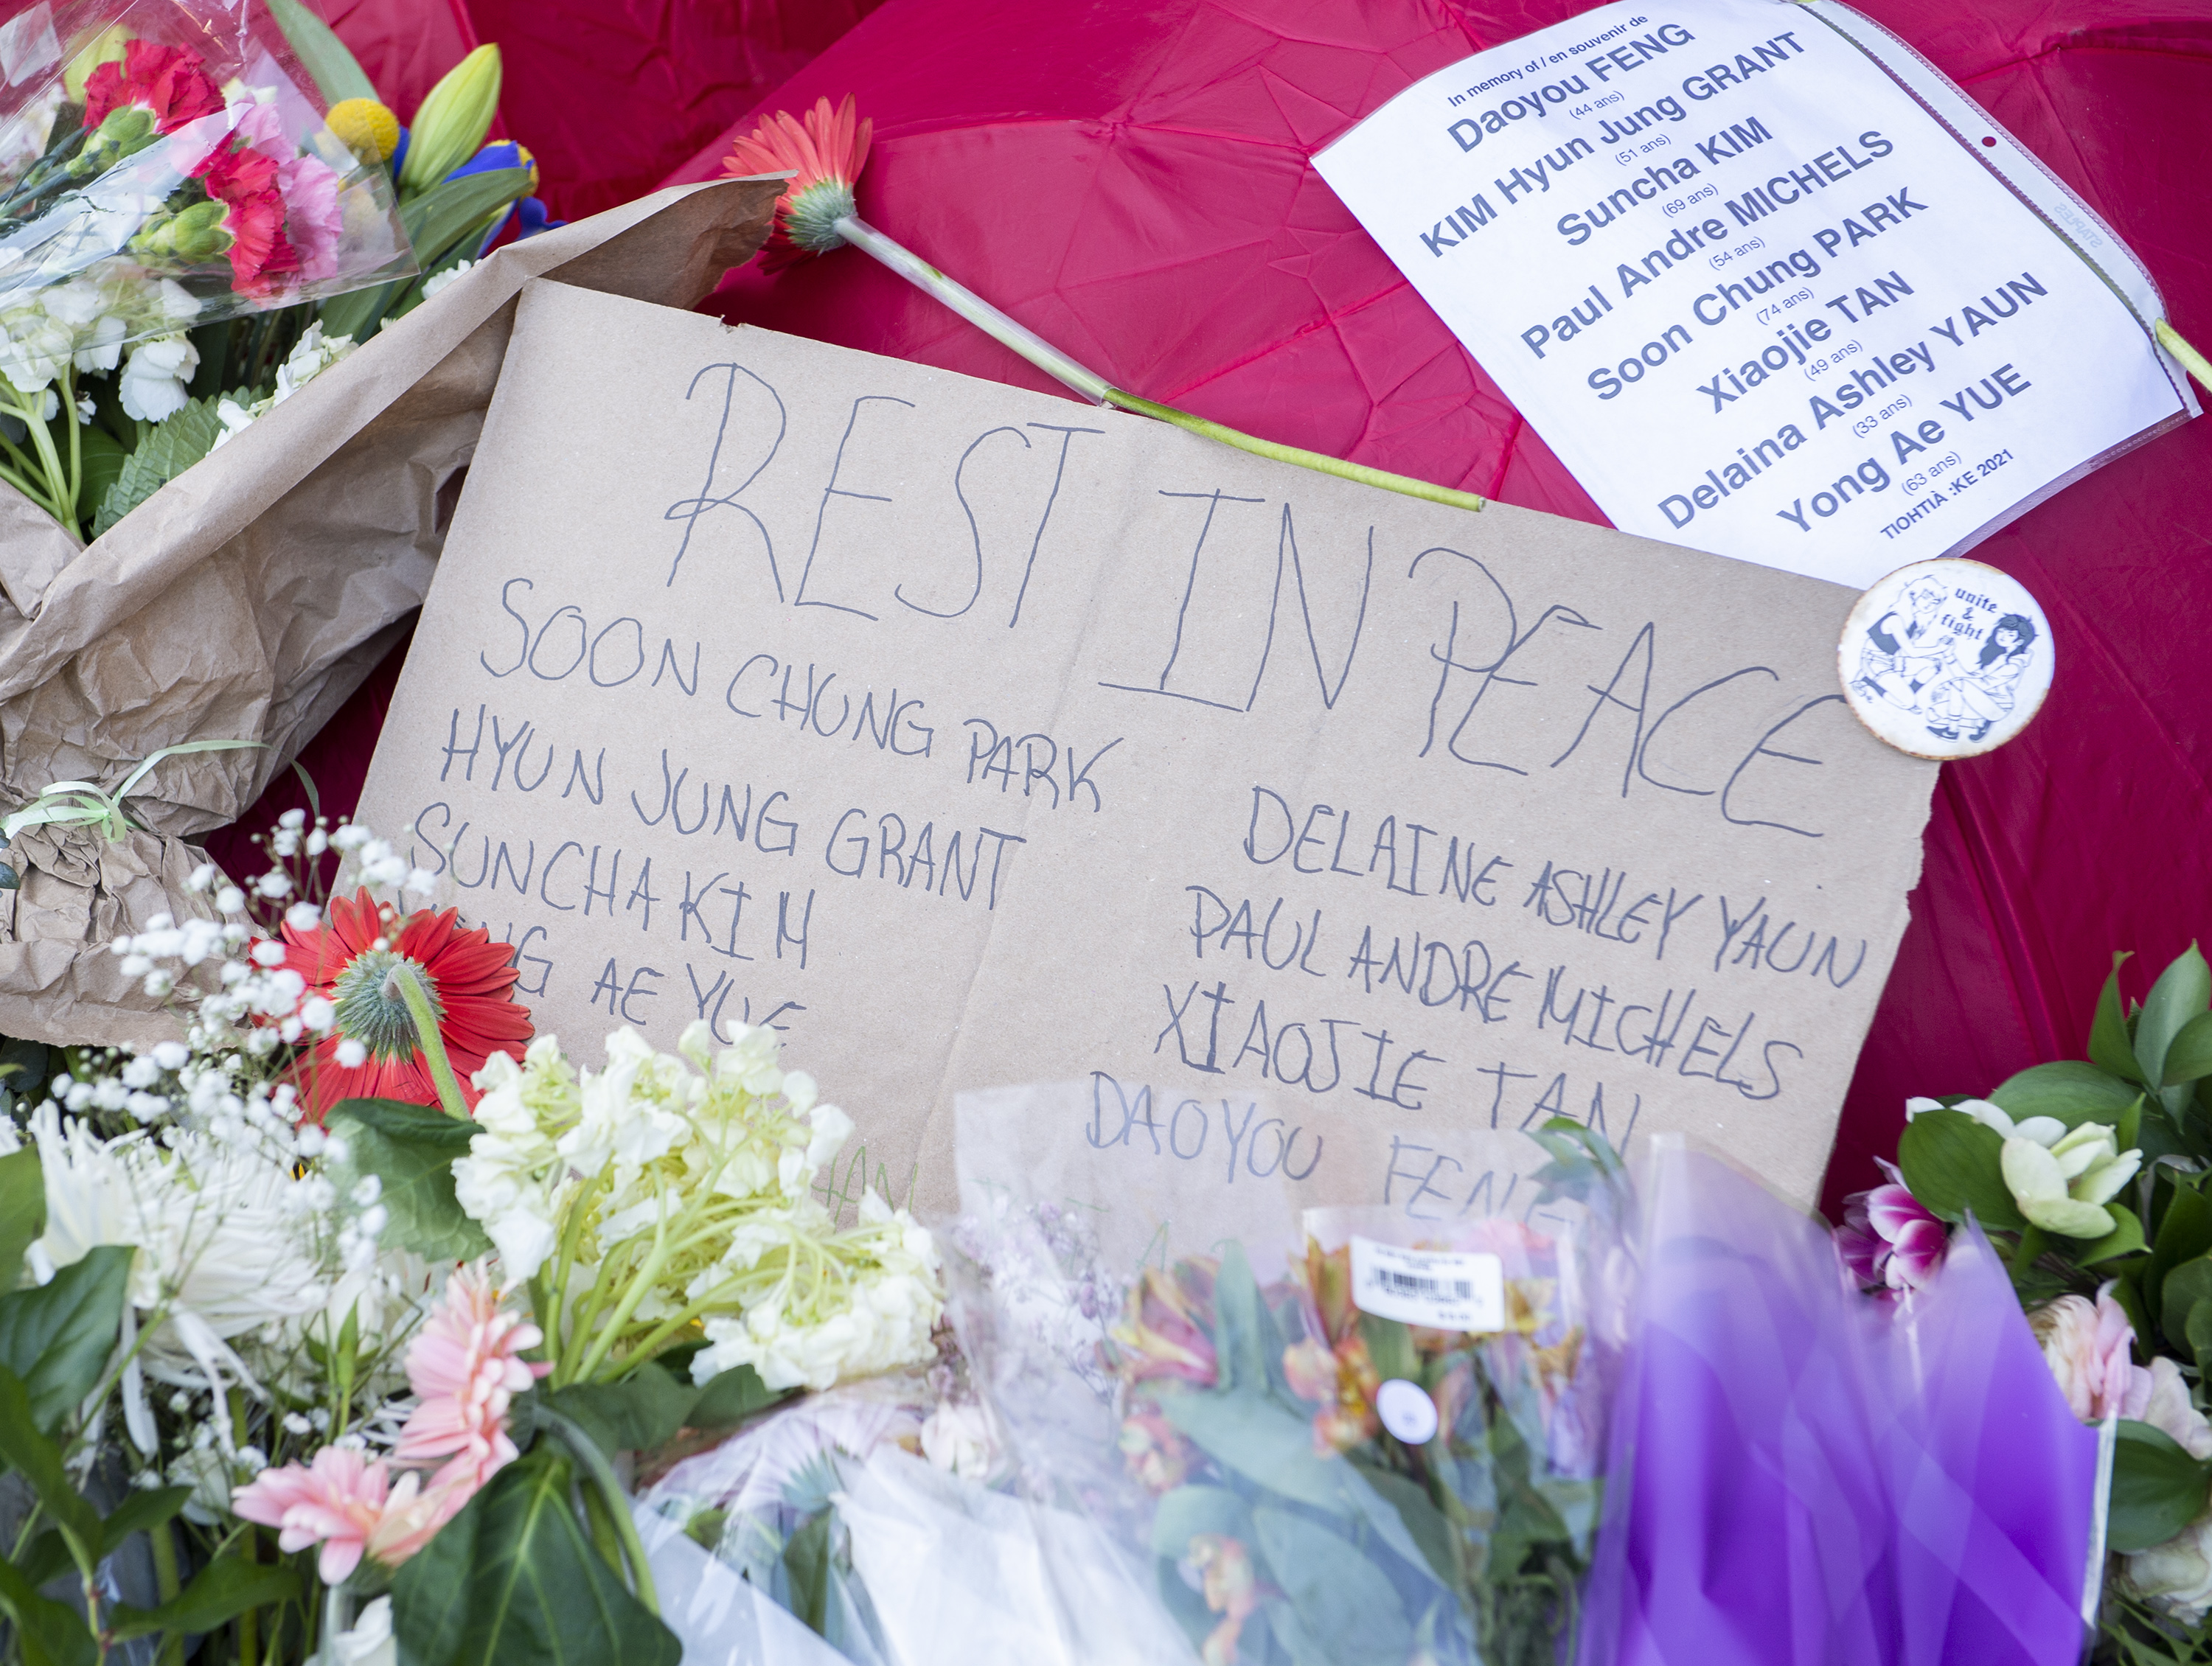 In memory of / en souvenir de
Daoyou FENG
(44 ans)
KIM Hyun Jung GRANT
(51 ans)
Suncha KIM
(69 ans)
Paul Andre MICHELS
(54 ans)
Soon Chung PARK
(74 ans)
Xiaojie TAN
(49 ans)
Delaina Ashley YAUN
(33 ans)
Yong Ae YUE
(63 ans)
TIOHTIÀ :KE 2021
STAPLES
unite
&
fight
REST IN PEACE
SOON CHUNG PARK
HYUN JUNG GRANT
SUNCHA KIM
AE YUE
DELAINE ASHLEY YAUN
PAUL ANDRE MICHELS
XIAOJIE TAN
DAOYOU FENG